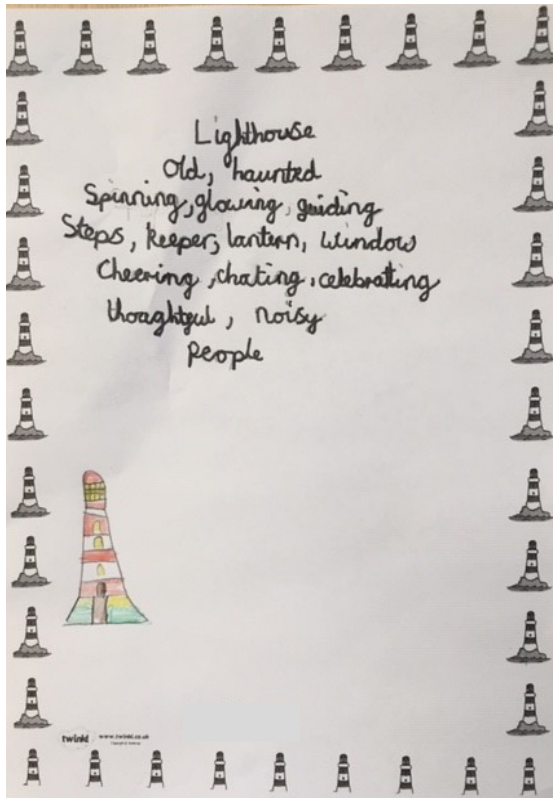 Lighthouse
Old, haunted
Spinning, glowing, guiding
Steps, keeper, lantern, window
Cheering, chating, celebrating
thoughtful, noisy
People
twinkl www.twinkl.co.uk